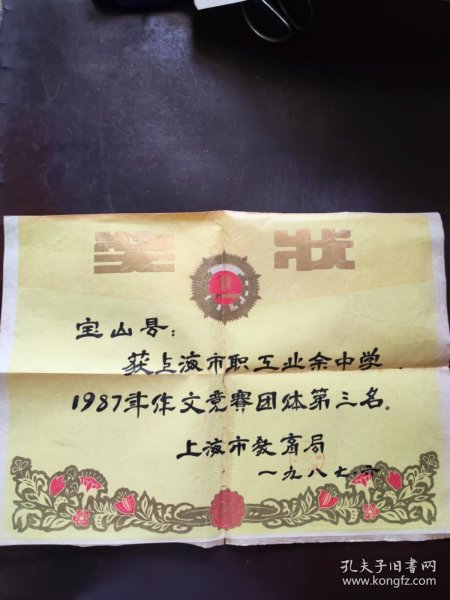 奖状
宝山县：
获上海市职工业余中学
1987年作文竞赛团体第三名。
上海市教育局
一九八七.六
孔夫子旧书网
www.kongfz.com